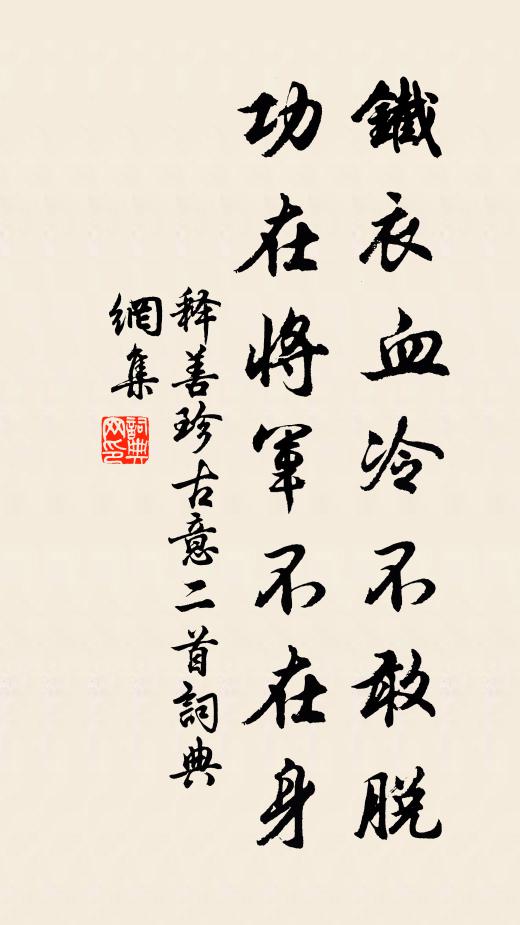 鐵衣血冷不敢脱
功在將軍不在身
释善珍古意二首詞典
網集
詞典
网印